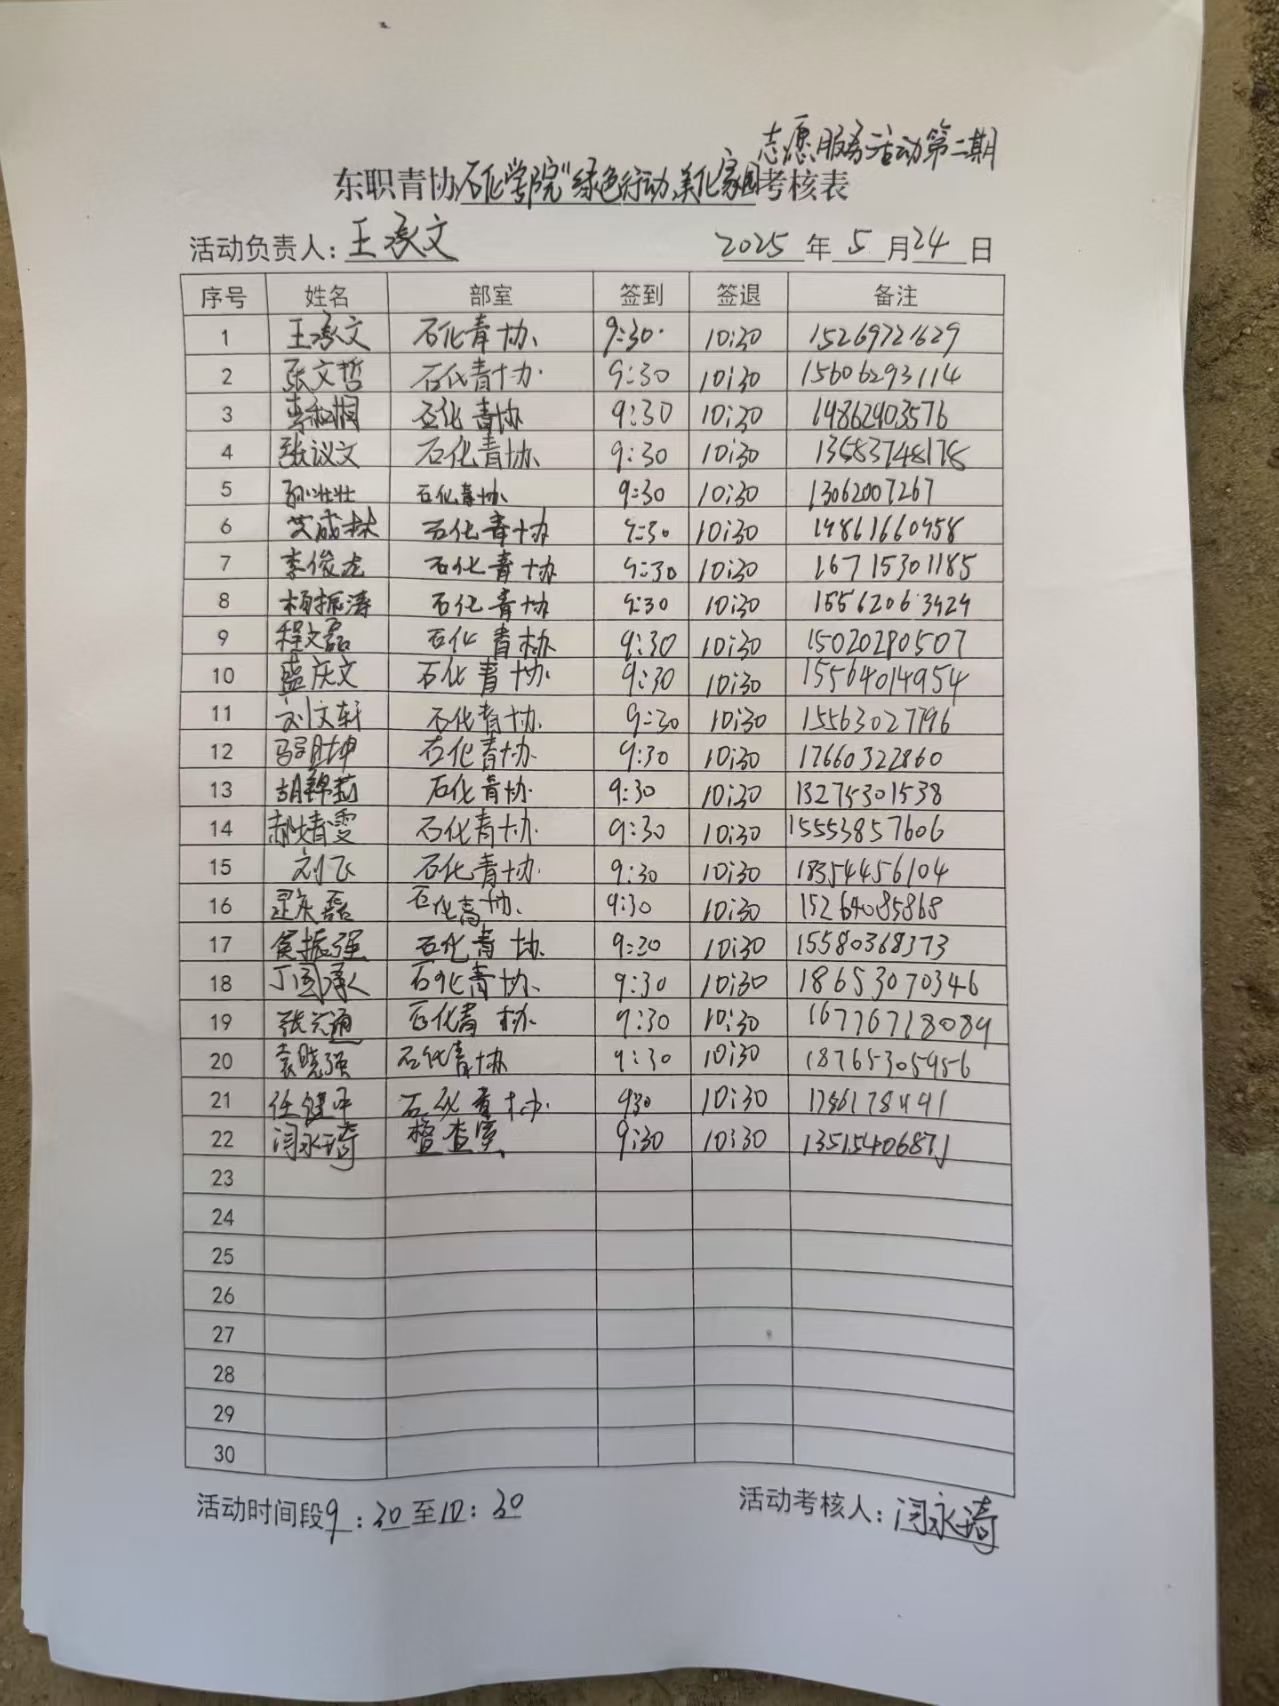 志愿服务活动第二期
东职青协石化学院"绿色行动,美化家园考核表
活动负责人：王承文 2025 年 5 月 24 日
序号 姓名 部室 签到 签退 备注
1 王承文 石化青协 9:30 10:30 15269721629
2 张文哲 石化青协 9:30 10:30 15606293114
3 石化青协 9:30 10:30 14862903576
4 张议文 石化青协 9:30 10:30 13583748175
5 孙壮壮 石化青协 9:30 10:30 13062007267
6 艾成林 石化青协 9:30 10:30 14861660458
7 李俊龙 石化青协 9:30 10:30 16715301185
8 杨振涛 石化青协 9:30 10:30 15562063424
9 程文磊 石化青协 9:30 10:30 15020280507
10 盛庆文 石化青协 9:30 10:30 15564014954
11 刘文轩 石化青协 9:30 10:30 15563027796
12 石化青协 9:30 10:30 17660322860
13 胡锦莉 石化青协 9:30 10:30 13275301538
14 郝婧雯 石化青协 9:30 10:30 15553857606
15 刘飞 石化青协 9:30 10:30 18354456104
16 石化青协 9:30 10:30 15264085868
17 侯振强 石化青协 9:30 10:30 15580368373
18 石化青协 9:30 10:30 18653070346
19 石化青协 9:30 10:30 16776718089
20 袁晓强 石化青协 9:30 10:30 18765305956
21 任健平 石化青协 930 10:30
22 闫永琦 检查室 9:30 10:30
23
24
25
26
27
28
29
30
活动时间段9:30至10:30 活动考核人：闫永琦